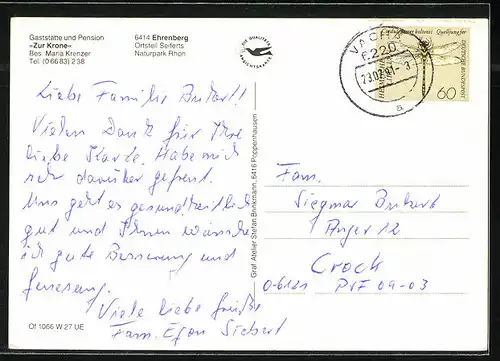 Gaststätte und Pension
»Zur Krone«
Bes. Maria Krenzer
Tel. (0 66 83) 2 38
6414 Ehrenberg
Ortsteil Seiferts
Naturpark Rhön
DIE QUALITÄTS
ANSICHTSKARTE
VACHA
6220
23.02.91
a
Quelljungfer
DEUTSCHE BUNDESPOST
60
Liebe Familie
Vielen Dank für Ihre
liebe Karte. Habe mich
sehr darüber gefreut.
Uns geht es gesundheitlich
gut und Ihnen wünsche
ich gute Besserung und
Genesung.
Viele liebe Grüße
Fam. Egon Siebert
Graf. Atelier Stefan Brinkmann, 6416 Poppenhausen
Fam.
Siegmar
Anger 12
Crock
O-6121 PSF 09-03
Of 1066 W 27 UE